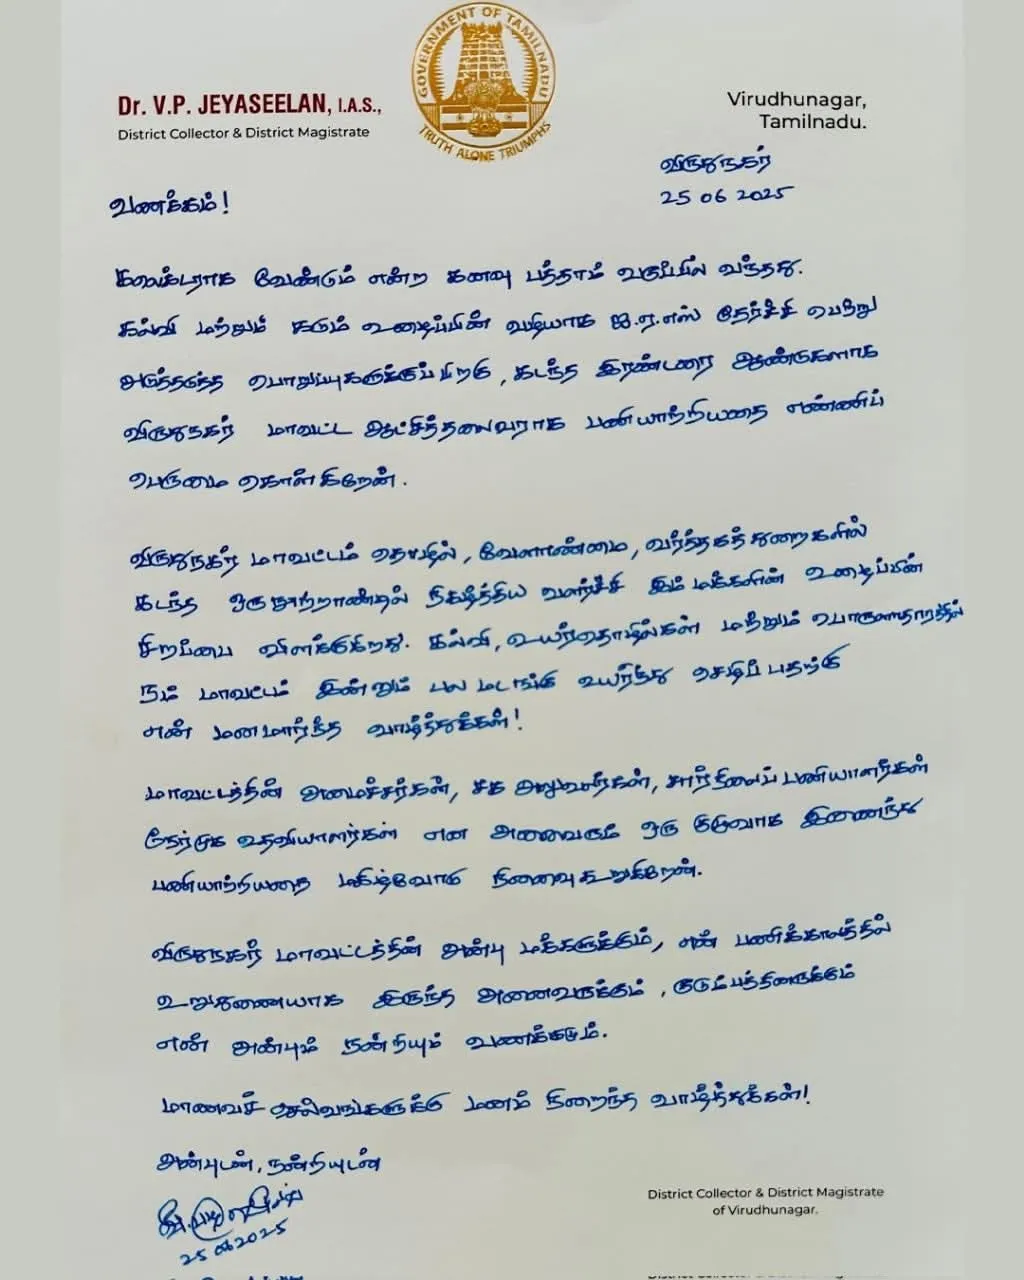 GOVERNMENT OF TAMILNADU
TRUTH ALONE TRIUMPHS
Dr. V.P. JEYASEELAN, I.A.S.,
District Collector & District Magistrate
Virudhunagar,
Tamilnadu.
விருதுநகர்
25 06 2025
வணக்கம்!
கலெக்டராக வேண்டும் என்ற கனவு பத்தாம் வகுப்பில் வந்தது.
கல்வி மற்றும் கடும் உழைப்பின் வழியாக ஐ.ஏ.எஸ் தேர்ச்சி பெற்று
அடுத்தடுத்த பொறுப்புகளுக்குப்பிறகு, கடந்த இரண்டரை ஆண்டுகளாக
விருதுநகர் மாவட்ட ஆட்சித்தலைவராக பணியாற்றியதை எண்ணிப்
பெருமை கொள்கிறேன்.
விருதுநகர் மாவட்டம் தொழில், வேளாண்மை, வர்த்தகத்துறைகளில்
கடந்த ஒரு நூற்றாண்டில் நிகழ்த்திய வளர்ச்சி இம் மக்களின் உழைப்பின்
சிறப்பை விளக்குகிறது. கல்வி, உயர்தொழில்கள் மற்றும் பொருளாதாரத்தில்
நம் மாவட்டம் இன்னும் பல மடங்கு உயர்ந்து செழிப்பதற்கு
என் மனமார்ந்த வாழ்த்துக்கள்!
மாவட்டத்தின் அமைச்சர்கள், சக அலுவலர்கள், சார்நிலைப் பணியாளர்கள்
நேர்முக உதவியாளர்கள் என அனைவரும் ஒரு குழுவாக இணைந்து
பணியாற்றியதை மகிழ்வோடு நினைவுகூறுகிறேன்.
விருதுநகர் மாவட்டத்தின் அன்பு மக்களுக்கும், என் பணிக்காலத்தில்
உறுதுணையாக இருந்த அனைவருக்கும், குடும்பத்தினருக்கும்
என் அன்பும் நன்றியும் வணக்கமும்.
மாணவச் செல்வங்களுக்கு மனம் நிறைந்த வாழ்த்துக்கள்!
அன்புடன், நன்றியுடன்
25 06 2025
District Collector & District Magistrate
of Virudhunagar.